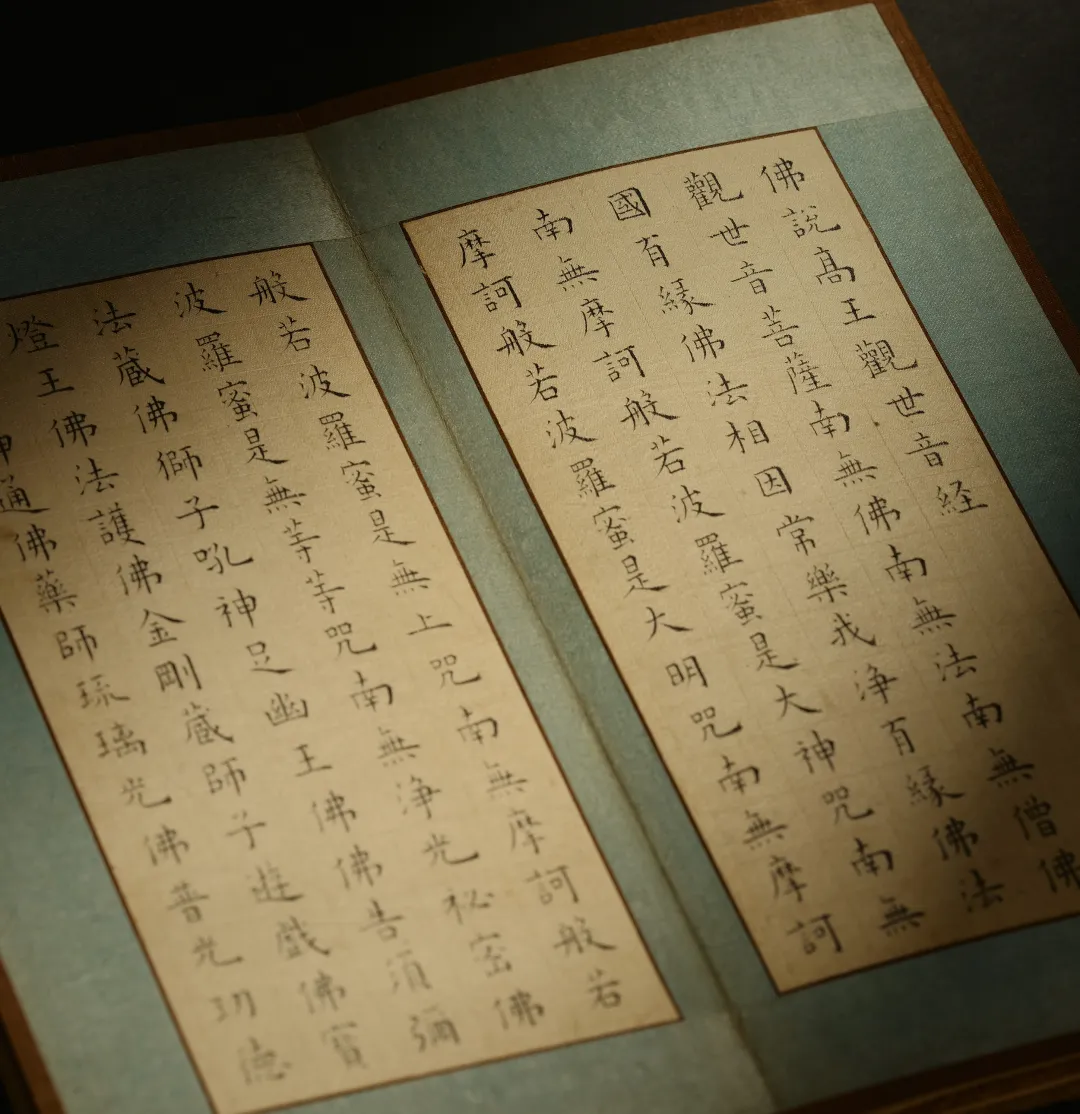 佛說髙王觀世音経
觀世音菩薩南無佛南無法南無僧佛
國有緣佛法相因常樂我浄有緣佛法
南無摩訶般若波羅蜜是大神咒南無
摩訶般若波羅蜜是大明咒南無摩訶
般若波羅蜜是無上咒南無摩訶般若
波羅蜜是無等等咒南無浄光秘密佛
法蔵佛獅子吼神足幽王佛佛告須彌
燈王佛法護佛金剛蔵師子遊戲佛寳
通佛藥師琉璃光佛普光功德